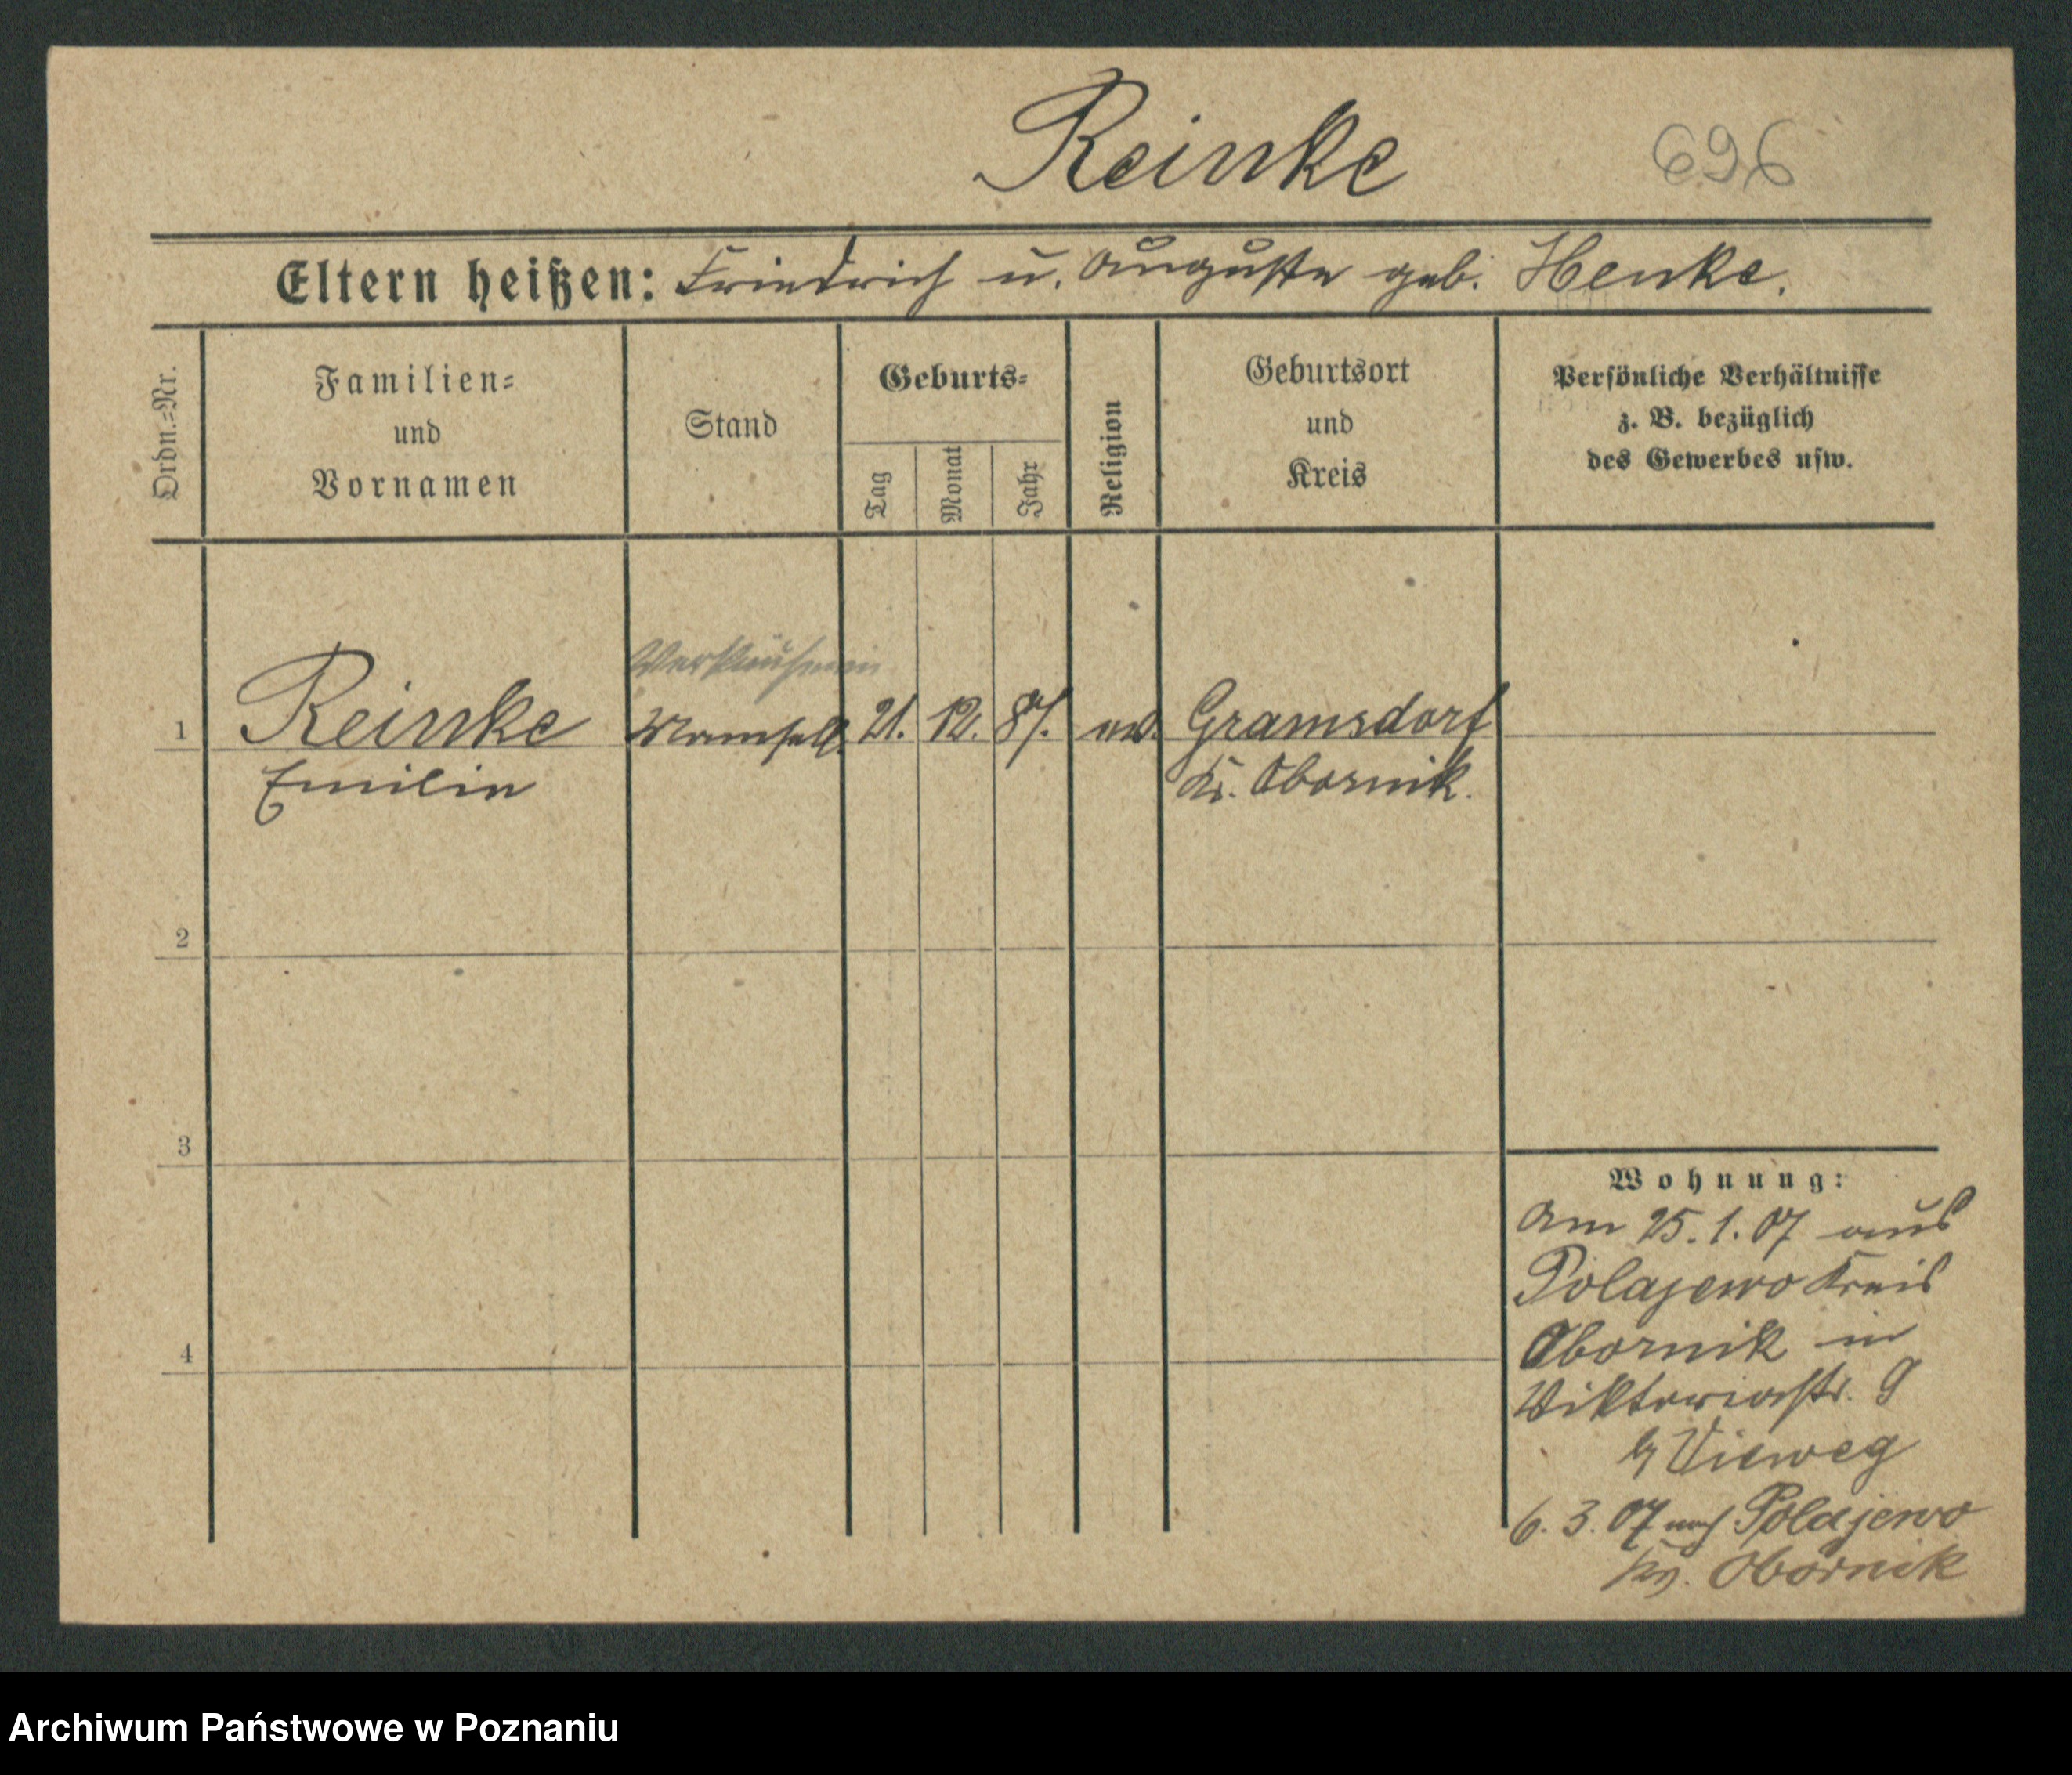 Reinke 696
Eltern heißen: Friedrich u. Auguste geb. Henke.
Ordn.=Nr.
Familien=
und
Vornamen
Stand
Geburts=
Tag
Monat
Jahr
Religion
Geburtsort
und
Kreis
Persönliche Verhältnisse
z. B. bezüglich
des Gewerbes usw.
Verkäuferin
1 Reinke Mamsell. 21. 12. 87. ev. Gramsdorf
Emilie Kr. Obornik.
2
3
4
Wohnung:
Am 25.1.07 aus
Polajewo Kreis
Obornik in
Viktoriastr. 9
b/ Vieweg
6.3.07 nach Polajewo
Kr. Obornik
Archiwum Państwowe w Poznaniu